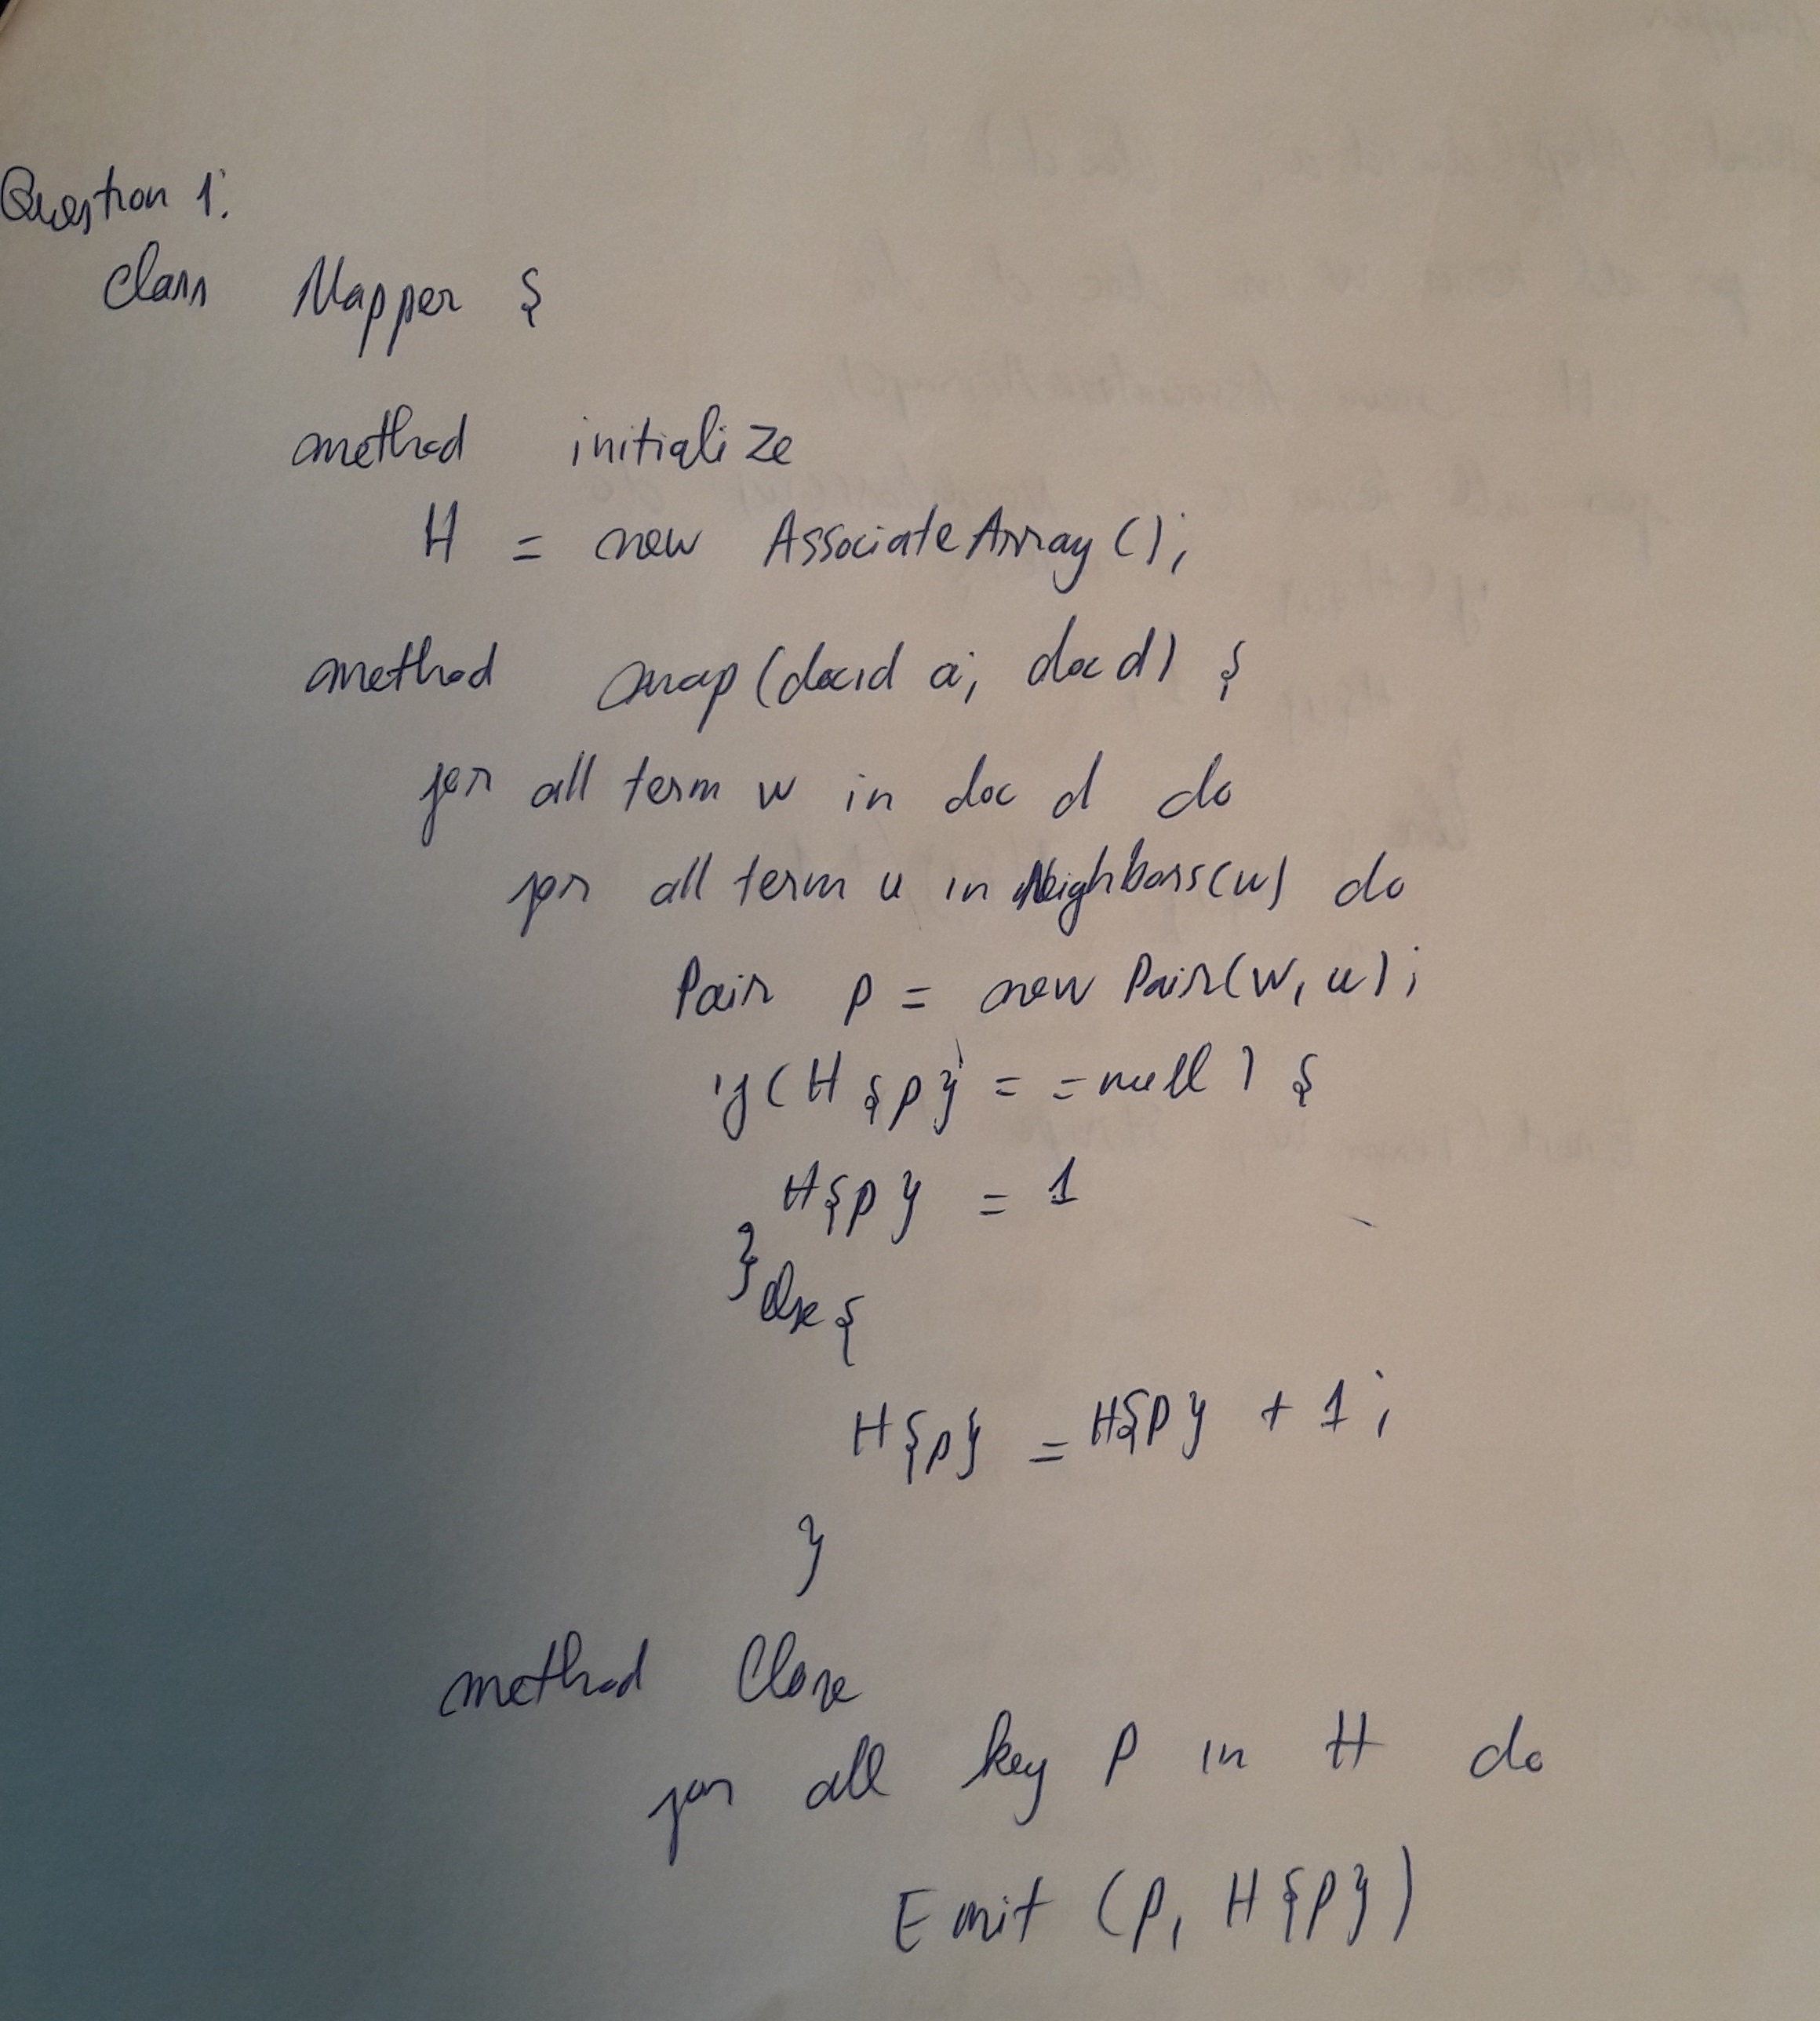 Question 1:
Class Mapper {
method initialize
H = new AssociateArray();
method map(docid a; doc d) {
for all term w in doc d do
for all term u in Neighbors(w) do
Pair p = new Pair(w, u);
if (H{p} == null) {
H{p} = 1
}else{
H{p} = H{p} + 1;
}
method Close
for all key p in H do
Emit (p, H{p})